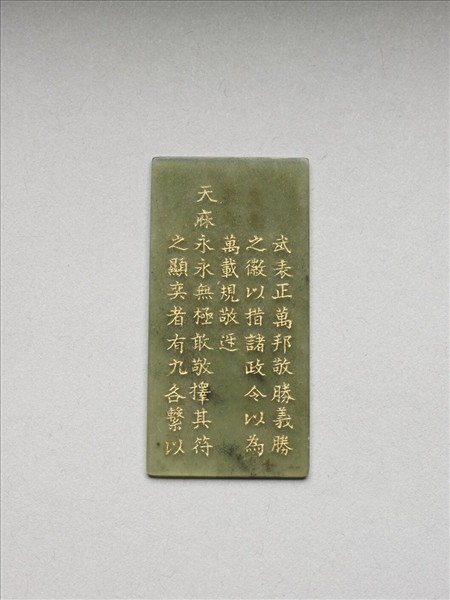 武表正萬邦敬勝義勝
之徽以措諸政令以為
萬載規敬迓
天庥永永無極敢敬擇其符
之顯奕者有九各繫以